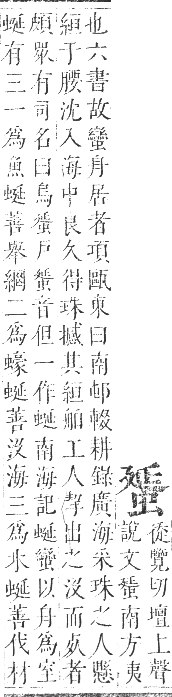 蜑
徒覽切壇上聲
說文蜑南方夷
也六書故蠻舟居者項甌東曰南邨輟耕錄廣海采珠之人懸
絙于腰沈入海中良久得珠撼其絙舶工人挈出之沒而死者
頗眾有司名曰烏蜑戶蜑音但一作蜒南海記蜒蠻以舟為室
蜒有三一為魚蜒善舉網二為蠔蜒善沒海三為木蜒善伐材